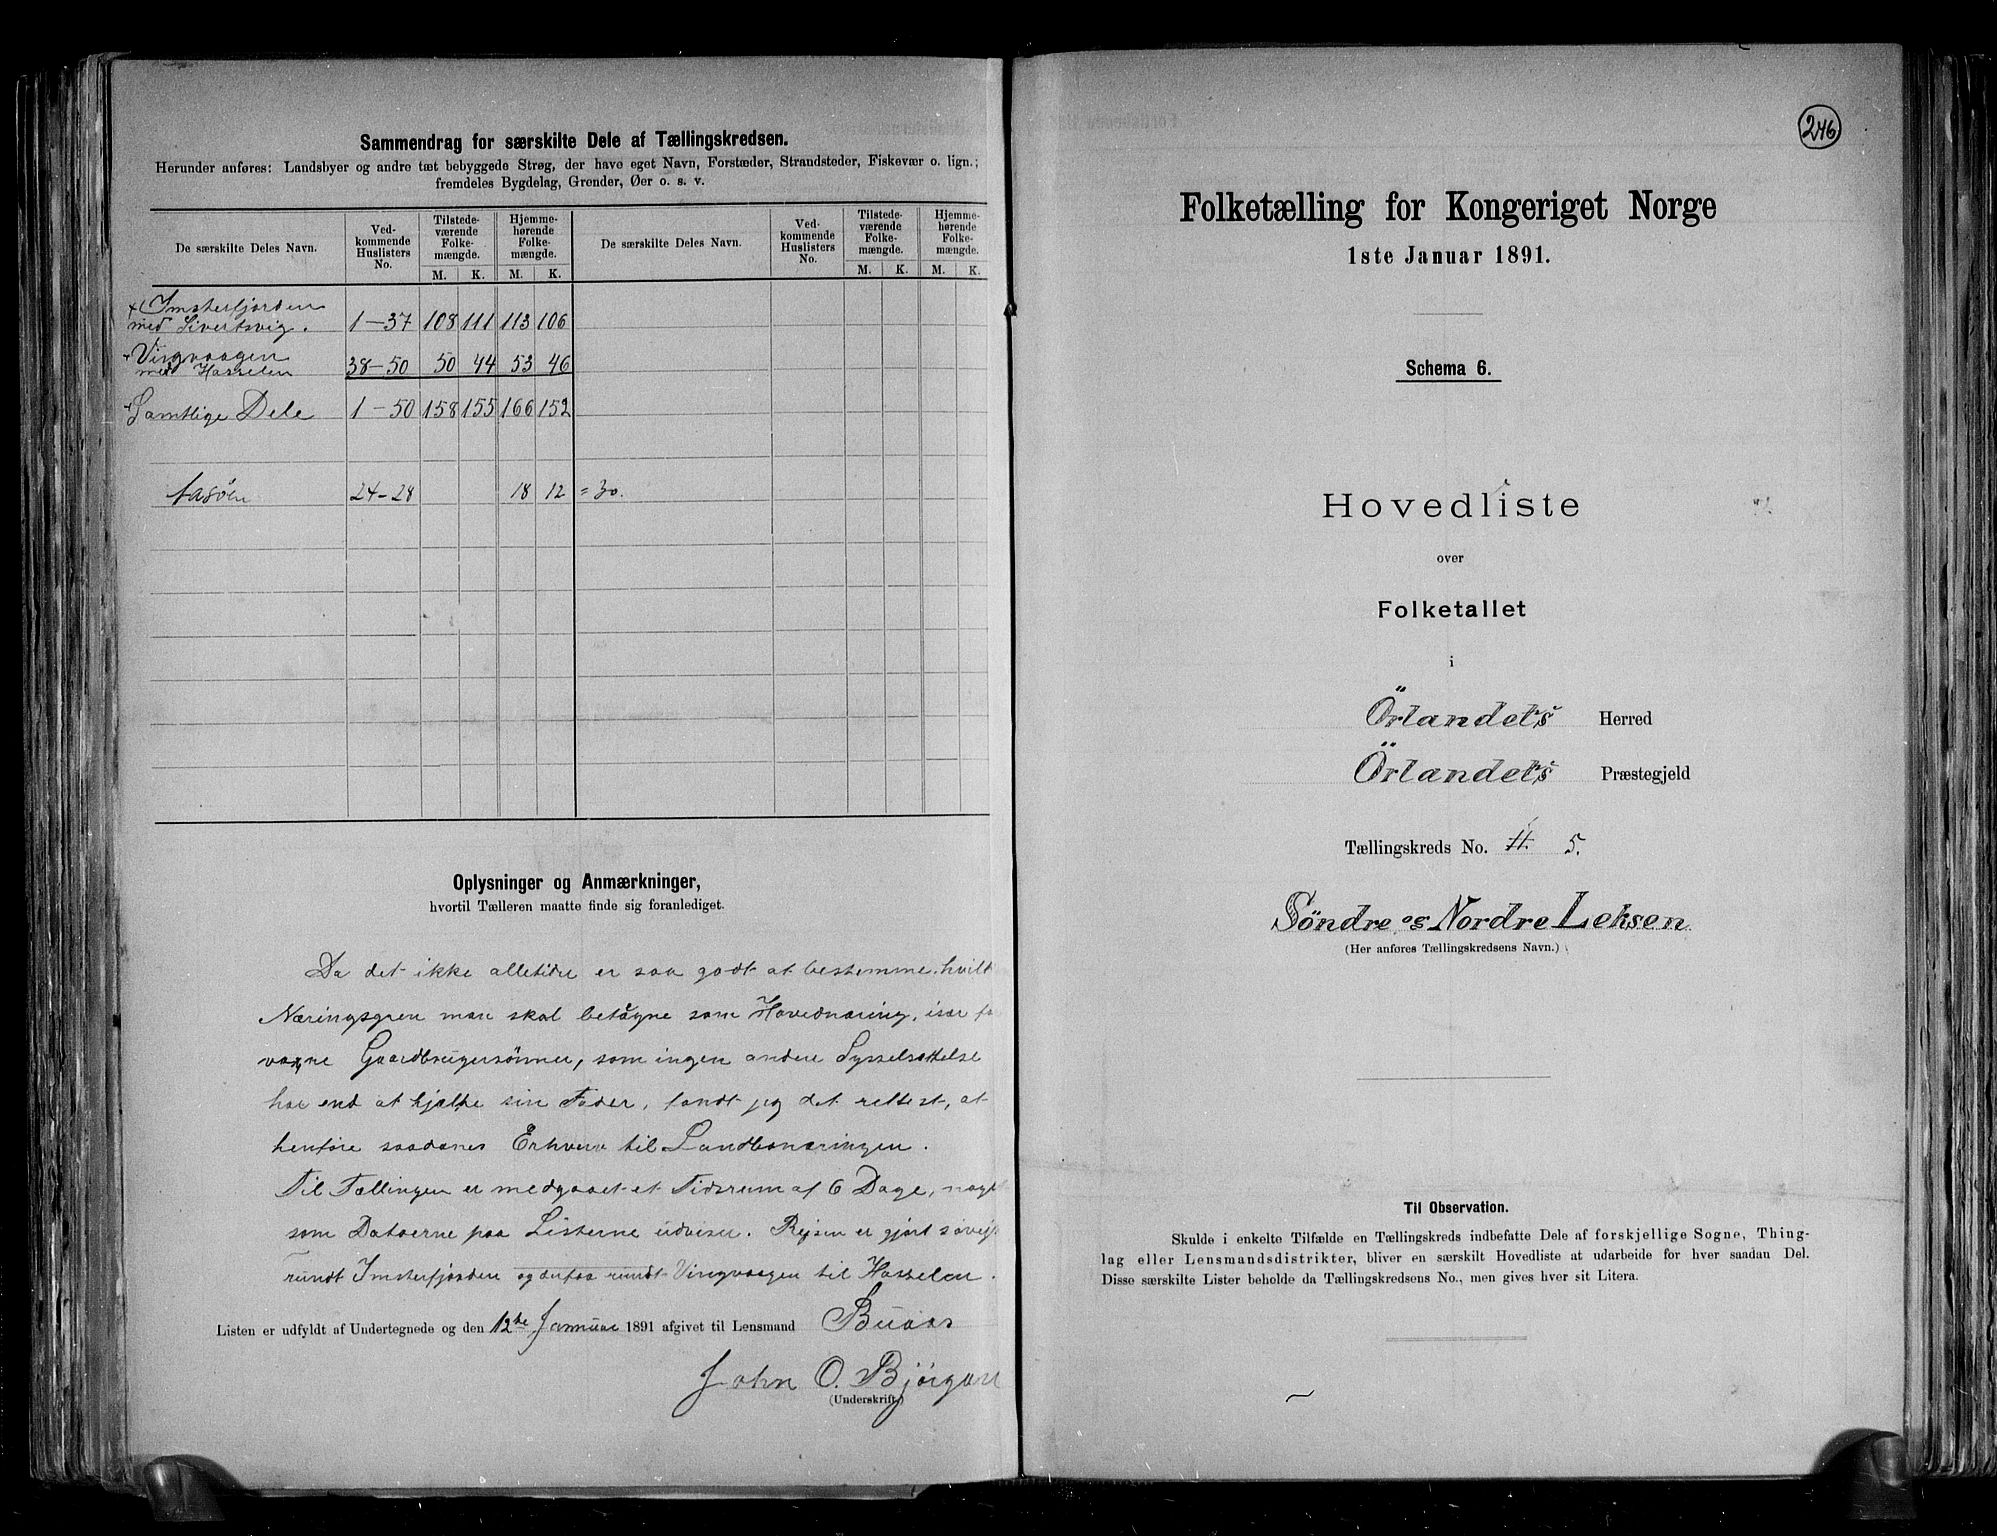 Sammendrag for særskilte Dele af Tællingskredsen.
Herunder anføres: Landsbyer og andre tæt bebyggede Strøg, der have eget Navn, Forstæder, Strandsteder, Fiskevær o. lign.;
fremdeles Bygdelag, Grender, Øer o. s. v.
De særskilte Deles Navn. Ved-kommende Huslisters No. Tilstede-værende Folke-mængde. Hjemme-hørende Folke-mængde. De særskilte Deles Navn. Ved-kommende Huslisters No. Tilstede-værende Folke-mængde. Hjemme-hørende Folke-mængde.
M. K. M. K. M. K. M. K.
Imsterfjorden
med Sivertsvig. 1-37 108 111 113 106
Vingvaagen
med Hasselen 38-50 50 44 53 46
Samtlige Dele 1-50 158 155 166 152
24-28 18 12 = 30.
Oplysninger og Anmærkninger,
hvortil Tælleren maatte finde sig foranlediget.
Da det ikke alletider er saa godt at bestemme, hvilk
Næringsgren man skal betegne som Hovednæring, især
voxne Gaardbrugersønner, som ingen anden Sysselsættelse
har end at hjælpe sin Fader, fandt jeg det rettest, at
henføre saadanes Erhverv til Landbonæringen.
Til Tællingen er medgaaet et Tidsrum af 6 Dage,
som Datoerne paa Listerne udviser. Rejsen er gjort søvejs
rundt Imsterfjorden og derfra rundt Vingvaagen til Hasselen.
Listen er udfyldt af Undertegnede og den 12te Januar 1891 afgivet til Lensmand Buaas
John O. Bjørgan
(Underskrift.)
246
Folketælling for Kongeriget Norge
1ste Januar 1891.
Schema 6.
Hovedliste
over
Folketallet
i
Örlandets Herred
Örlandets Præstegjeld
Tællingskreds No. 11. 5.
Söndre og Nordre Leksen
(Her anføres Tællingskredsens Navn.)
Til Observation.
Skulde i enkelte Tilfælde en Tællingskreds indbefatte Dele af forskjellige Sogne, Thing-
lag eller Lensmandsdistrikter, bliver en særskilt Hovedliste at udarbeide for hver saadan Del.
Disse særskilte Lister beholde da Tællingskredsens No., men gives hver sit Litera.